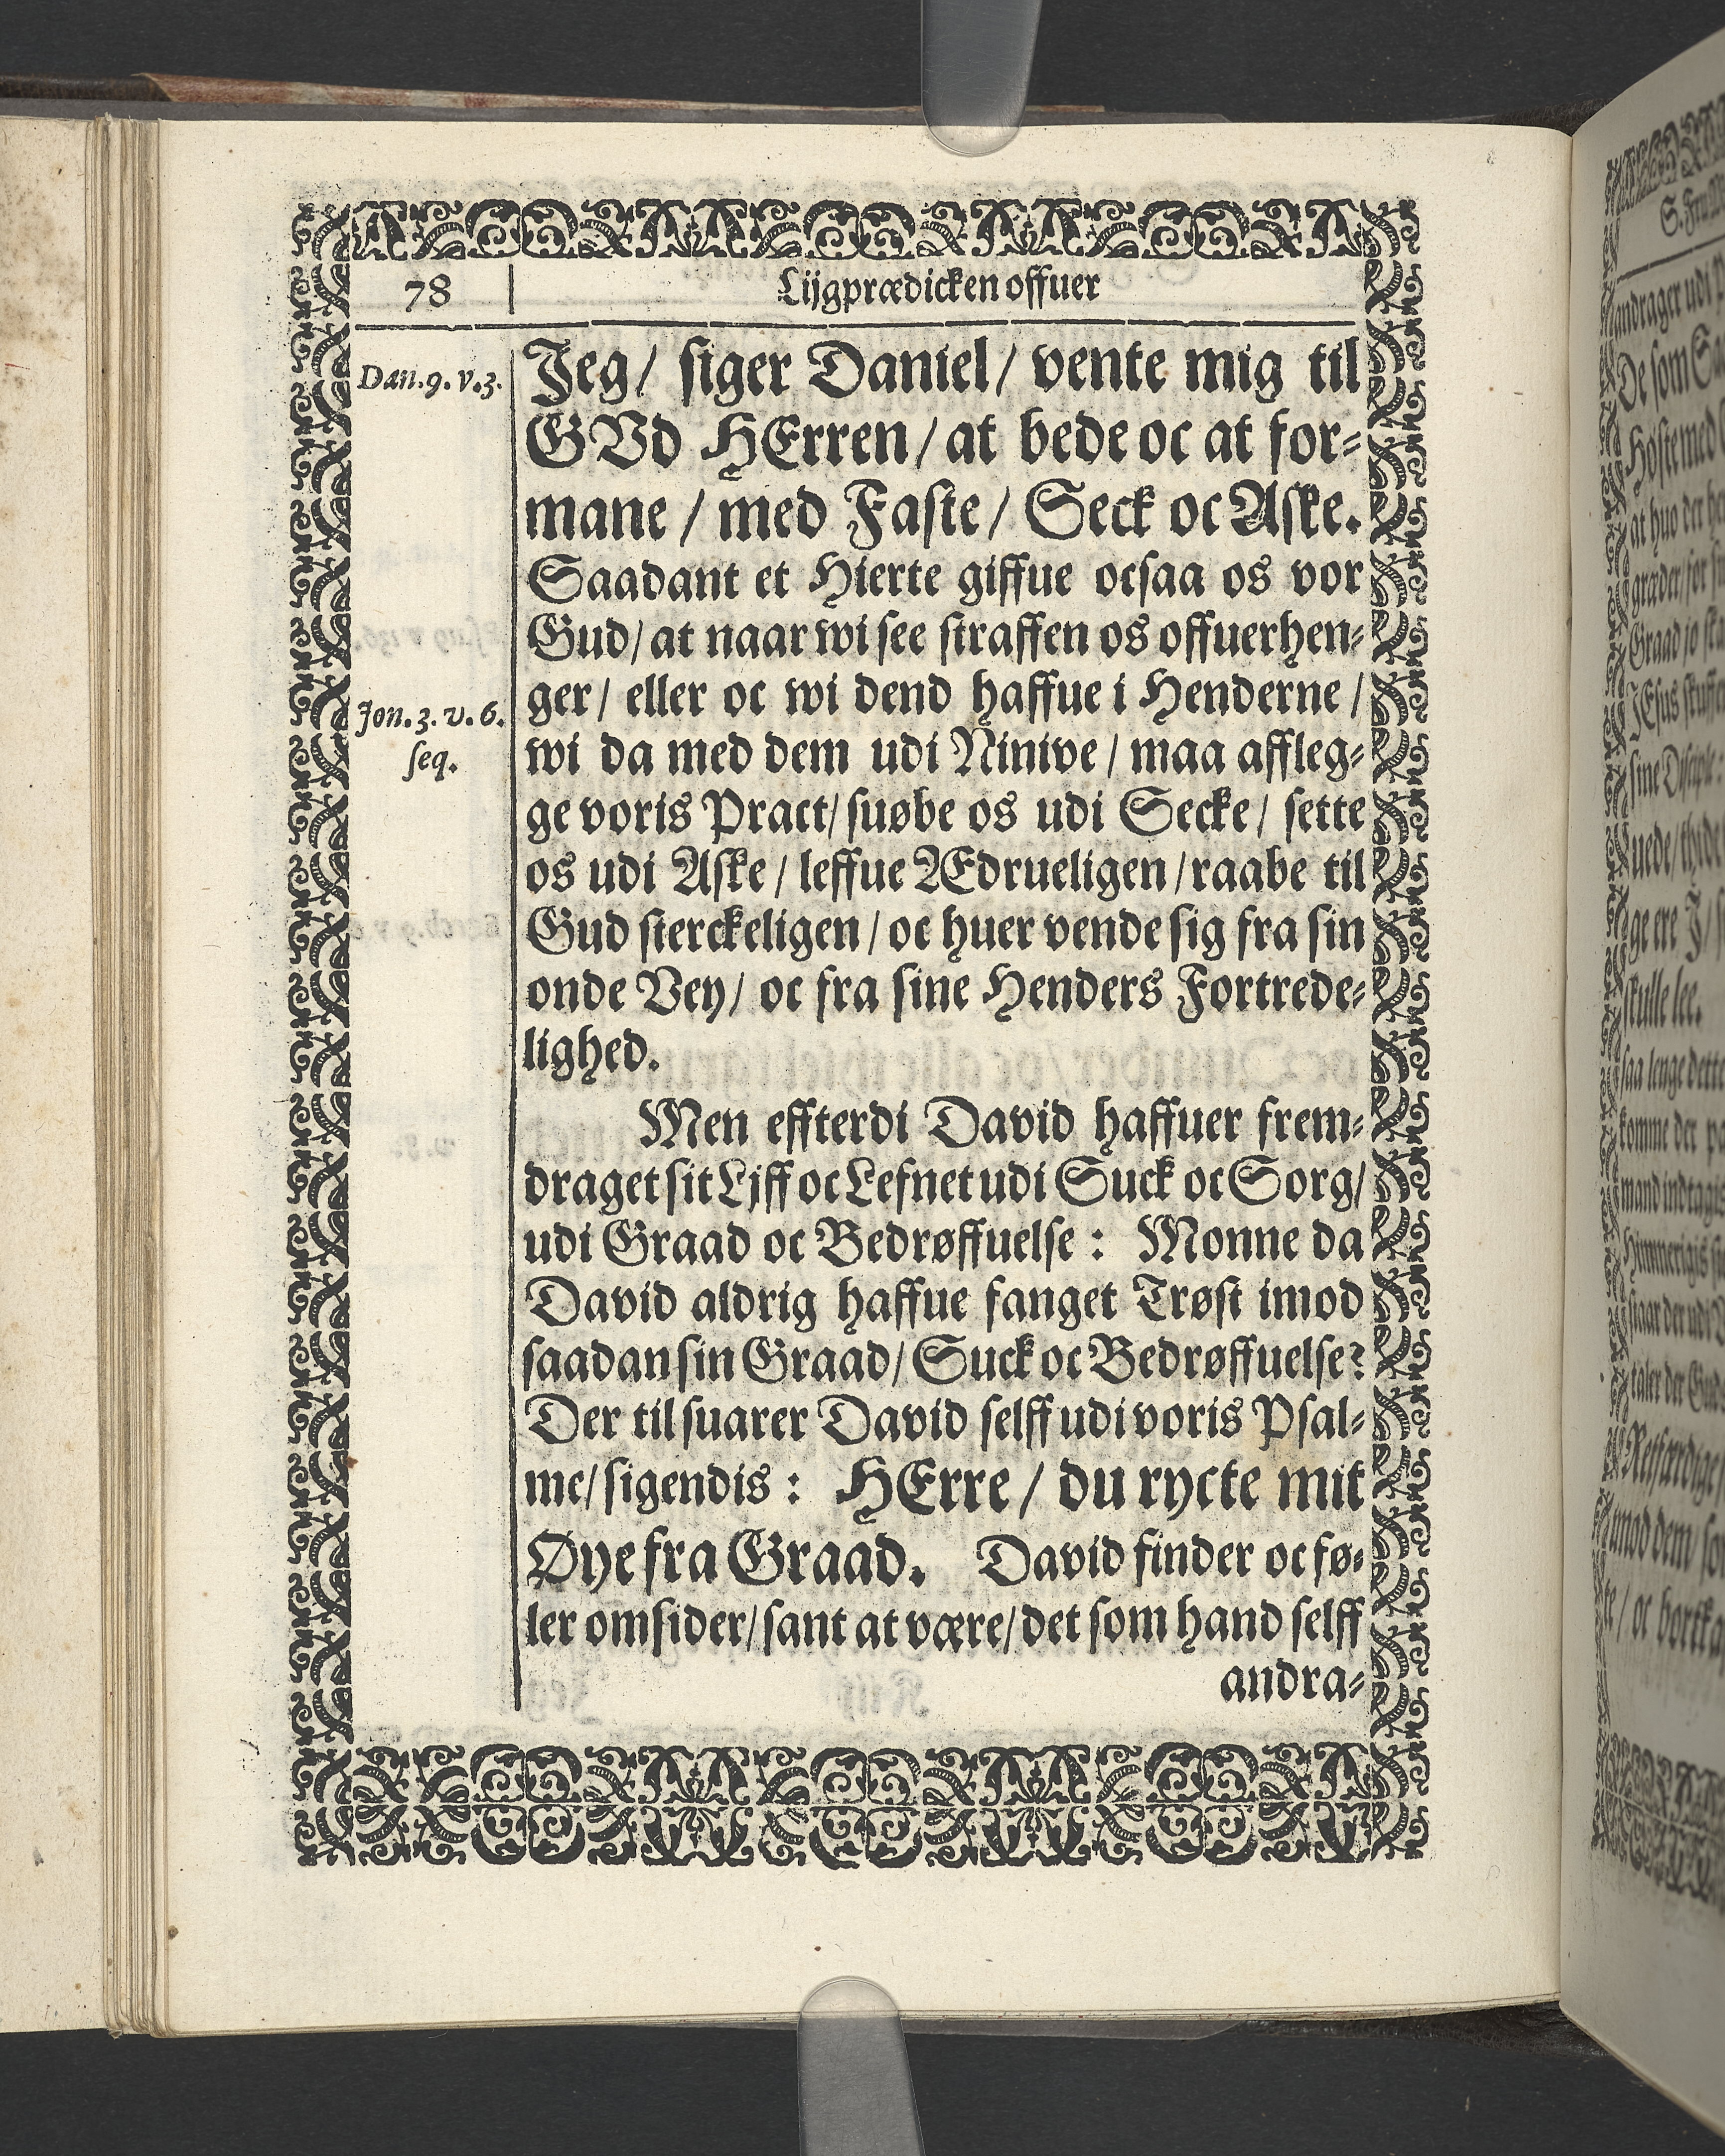 78
Lijgprædicken offuer
Dan. 9. v. 3.
Jeg / siger Daniel / vente mig til
GVd HErren / at bede oc at for⸗
mane / med Faste / Seck oc Aske.
Saadant et Hierte giffue ocsaa os vor
Gud / at naar wi see straffen os offuerhen⸗
ger / eller oc wi dend haffue i Henderne /
Jon. 3. v. 6.
seq.
wi da med dem udi Ninive / maa affleg⸗
ge voris Pract / suøbe os udi Secke / sette
os udi Aske / leffue Ædrueligen / raabe til
Gud sterckeligen / oc huer vende sig fra sin
onde Vey / oc fra sine Henders Fortrede⸗
lighed.
Men effterdi David haffuer frem⸗
draget sit Ljff oc Lefnet udi Suck oc Sorg /
udi Graad oc Bedrøffuelse : Monne da
David aldrig haffue fanget Trøst imod
saadan sin Graad / Suck oc Bedrøffuelse?
Der til suarer David selff udi voris Psal⸗
me / sigendis : HErre / du rycte mit
Øye fra Graad. David finder oc fø⸗
ler omsider / sant at være / det som hand selff
andra⸗